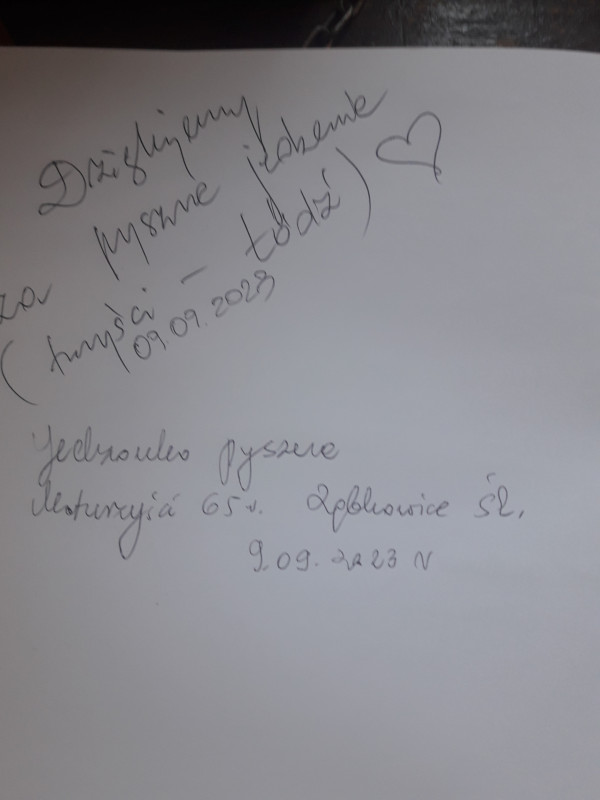 Dziękujemy
za pyszne jedzenie
(turyści – Łódź) ♡
09.09.2023
Jedzonko pyszne
Maturzyści 65 r. Ząbkowice Śl.
9.09.2023 r